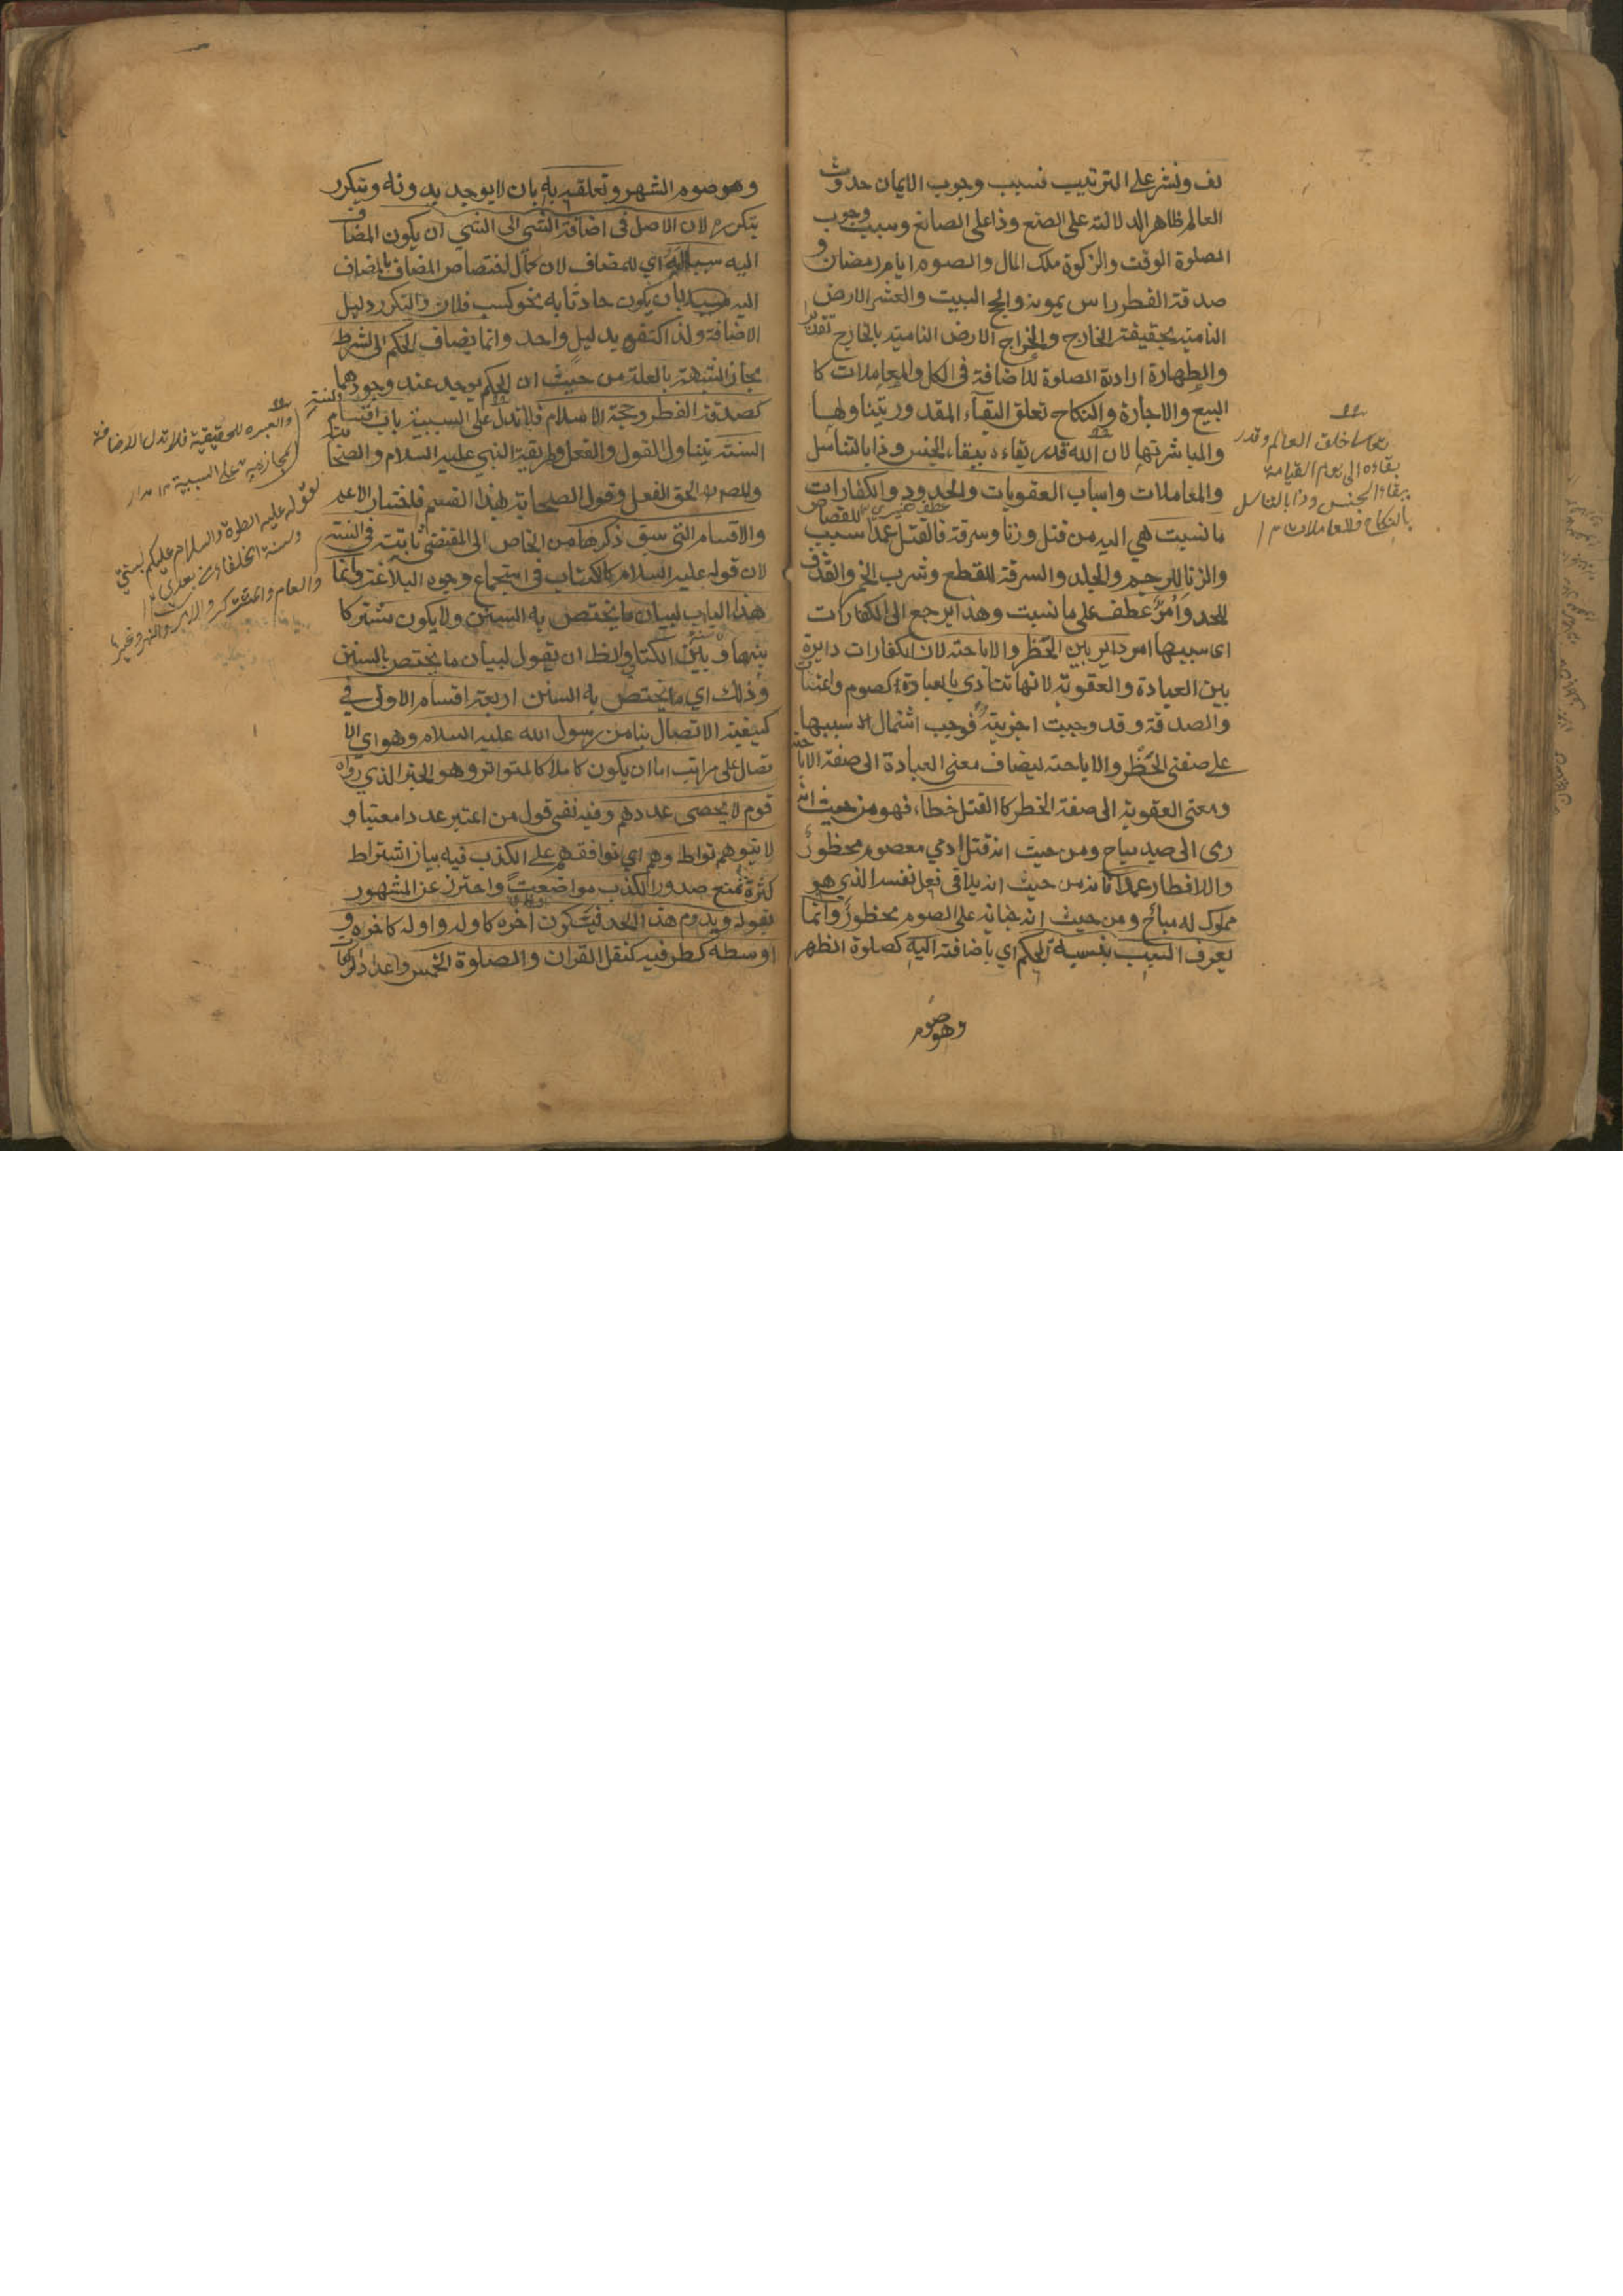 لف ونشر على الترتيب فسبب وجوب الايمان حدوث
العالم ظاهر الدلالته على الصنع وذا على الصانع وسبب وجوب
الصلوة الوقت والزكوة ملك المال والصوم ايام رمضان و
صدقة الفطر راس يمونه والحج البيت والعشر الارض
النامية بحقيقة الخارج والخراج الارض النامية بالخارج تقديرا
والطهارة ارادة الصلوة للاضافة في الكل وللمعاملات كا
البيع والاجارة والنكاح تعلق البقاء المقدور بتناولها
والمباشرتها لان الله قدر بقاءه ببقاء الجنس وذا بالتناسل
والمعاملات واسباب العقوبات والحدود والكفارات
ما نسبت هي اليه من قتل وزنا وسرقة فالقتل عمدا سبب للقصاص
والزنا للرجم والجلد والسرقة للقطع وشرب الخمر والقذف
للحد وامر عطف على ما نسبت وهذا يرجع الى الكفارات
اى سببها امر داير بين الحظر والاباحته لان الكفارات دايرة
بين العبادة والعقوبة لانها تتادى بالعبادة كصوم واعتاق
والصدقة وقد وجبت اجزية فوجب اشتمال سببها
على صفتى الحظر والاباحته ليضاف معنى العبادة الى صفة الاباحة
ومعنى العقوبة الى صفة الخطر كا القتل خطاء فهو من حيث انه
رمى الى صيد مباح ومن حيث انه قتل ادمي معصوم محظور
والافطار عمدا فانه من حيث انه يلاقى فعل نفسه الذي هو
مملوك له مباح ومن حيث انه جنانه على الصوم محظور وانما
يعرف السبب بنسبة الحكم اي باضافته اليه كصلوة الظهر
وهو صوم
خلق العالم وقدر
بقاءه الى يوم القيامة
ببقاء الجنس وذا بالتناسل
بالنكاح والمعاملات ١٢
وهو صوم الشهر وتعلقه به بان لا يوجد بدونه ويتكرر
بتكرره لان الاصل في اضافة الشي الى الشي ان يكون المضاف
اليه سببا له اي للمضاف لان كمال اختصاص المضاف بالمضاف
اليه بان يكون حادثا به نحو كسب فلان والتكرر دليل
الاضافة ولذا اكتفى بدليل واحد وانما يضاف الحكم الى الشرط
مجازا لشبهته بالعلة من حيث ان الحكم يوجد عند وجودهما
كصدقة الفطر وحجة الاسلام فلا تدل على السببية باب اقسام السنة
السنته يتناول القول والفعل وطريقة النبي عليه السلام والصحابة
والمصر الحق الفعل وقول الصحابة بهذا القسم فاختار الاعم
والاقسام التي سبق ذكرها من الخاص الى المقتضى ثابتة في السنة
لان قوله عليه السلام كالكتاب في استجماع وجوه البلاغة وانما
هذا الباب لبيان ما يختص به السنن ولا يكون مشتركا
بينها وبين الكتاب والظ ان يقول لبيان ما يختص بالسنن
وذلك اي ما يختص به السنن اربعة اقسام الاولى في
كيفية الاتصال بنا من رسول الله عليه السلام وهو اي الا
تصال على مراتب اما ان يكون كاملا كالمتواتر وهو الخبر الذي رواه
قوم لا يحصى عددهم وفيه نفى قول من اعتبر عددا معينا و
لا يتوهم تواطوهم اي توافقهم على الكذب فيه بيان اشتراط
كثرة تمنع صدور الكذب مواضعة واحترز عن المشهور
بقوله ويدوم هذا الحد فيكون اخره كاوله واوله كاخره و
اوسطه كطرفيه كنقل القران والصلوة الخمس واعداد الركعات
والعبرة للحقيقية فلا تدل الاضافة
المجازية على السببية ١٢
لقوله عليه الصلوة والسلام عليكم بسنتي
وسنة الخلفاء من بعدي ١٢
والعام والمشترك والامر والنهي وغيرها